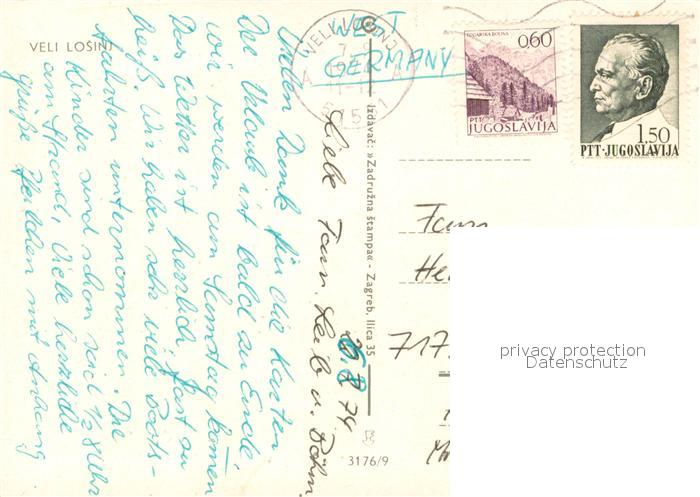 VELI LOŠINJ
Liebe Fam. Leib u. Böhm.
26.8.74
Vielen Dank für die Karten
Der Urlaub ist bald zu Ende
wir werden am Samstag kommen
Das Wetter ist herrlich fast zu
heiß. Wir haben sehr viele Boots-
fahrten unternommen. Die
Kinder sind schon seit ½ 8 Uhr
am Strand, Viele herzliche
Grüße mit Anhang
WEST
GERMANY
VELI LOŠINJ
0.60
PTT
JUGOSLAVIJA
1.50
PTT·JUGOSLAVIJA
Izdavač: »Zadružna štampa« - Zagreb, Ilica 35
3176/9
Fam
He
717
privacy protection
Datenschutz